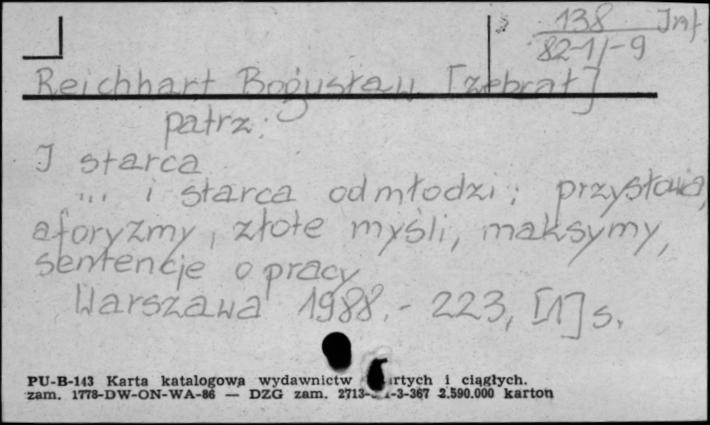 138 Inf
82-1/-9
Reichhart Bogusław [zebrał]
patrz:
I starca
... i starca odmłodzi; przysłowia,
aforyzmy, złote myśli, maksymy,
sentencje o pracy
Warszawa 1988.- 223, [1] s.
PU-B-143 Karta katalogowa wydawnictw rtych i ciągłych.
zam. 1778-DW-ON-WA-86 — DZG zam. 2713- -3-367 2.590.000 karton